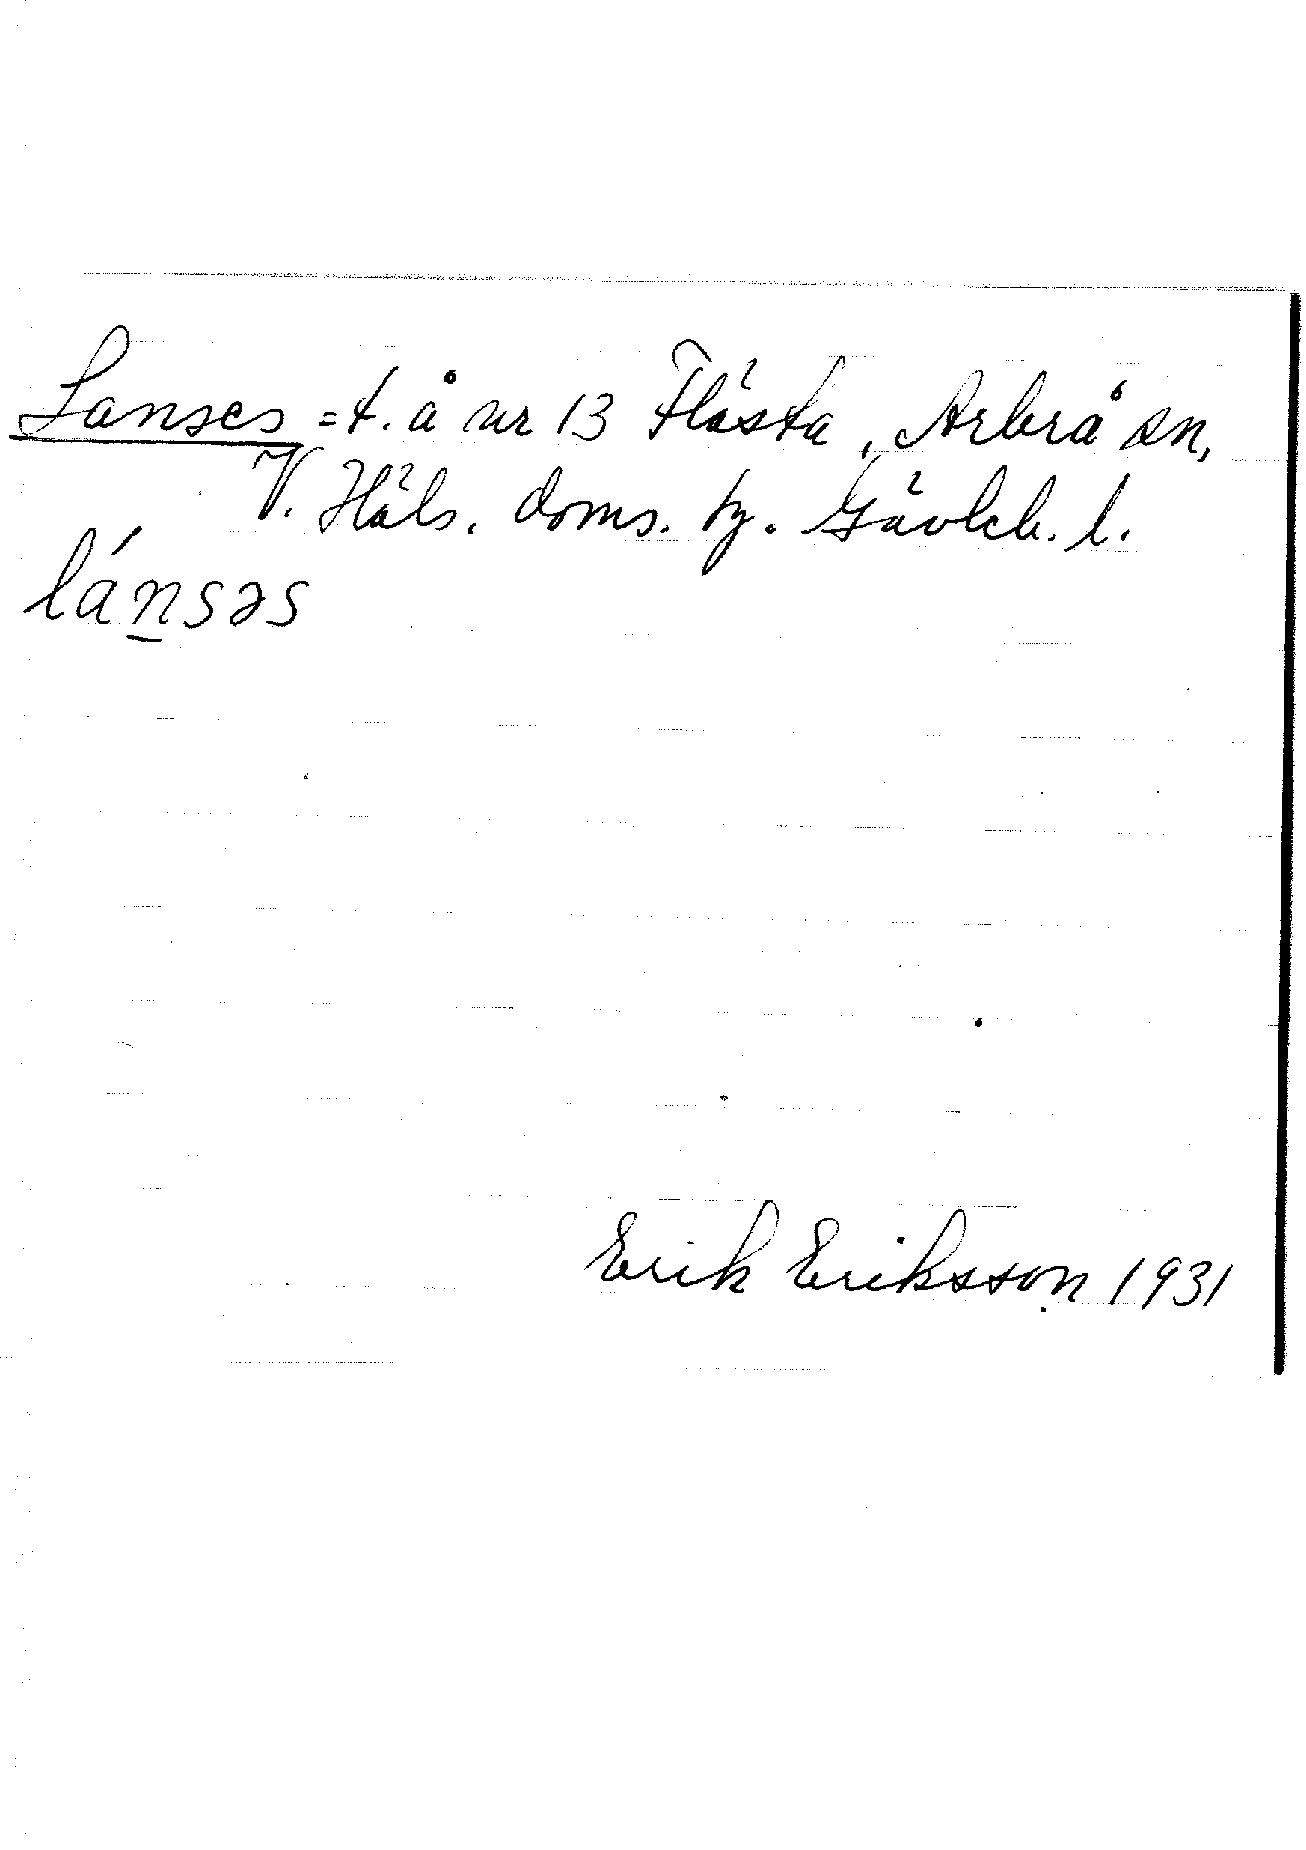 Lanses = t. å nr 13 Flästa, Arbrå sn,
V. Häls. doms. tg. Gävleb. l.
lánsəs
Erik Eriksson 1931